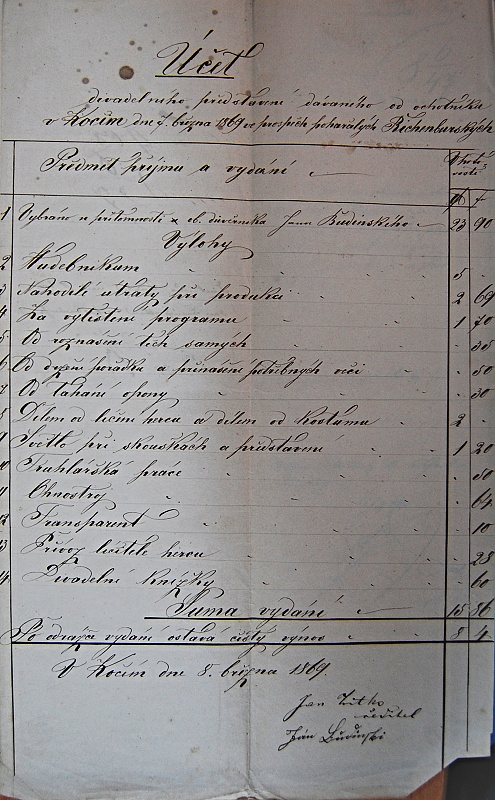 Účet
divadelního představení dávaného od ochotníků
v Kočím dne 7. března 1869 ve prospěch pohořalých Řechenburských
Předmět příjmu a vydání
1 Vybráno u přítomnosti x ob. důvěrníka Jana Budinského 23 90
Výlohy
2 Hudebníkum 5 -
3 Nahodilé útraty při produkci 2 69
4 Za vytištění programu 1 70
5 Od roznášení těch samých - 35
6 Od držení pořádku a přinášení potřebných věcí - 50
7 Od tahání opony - 30
8 Dílem od líčení herců a dílem od kostumu 2 -
9 Světlo při skouškách a představení 1 20
10 Truhlářská práce - 50
11 Ohnostroj - 64
12 Transparent - 10
13 Přívoz líčitele herců - 28
14 Divadelní knížky - 60
Suma vydání 15 86
Po odrazu vydání ostává čistý výnos 8 4
V Kočím dne 8. března 1869.
Jan
učitel
Jan Budinský